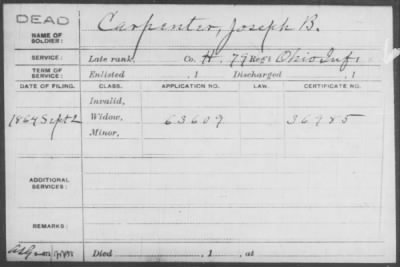 DEAD
NAME OF SOLDIER: Carpenter, Joseph B.
SERVICE: Late rank, Co. H. 79 Reg't Ohio Inf.
TERM OF SERVICE: Enlisted , 1 Discharged , 1
DATE OF FILING. CLASS. APPLICATION NO. LAW. CERTIFICATE NO.
Invalid,
1864 Sept 2 Widow, 63609 36985
Minor,
ADDITIONAL SERVICES:
REMARKS:
Died , 1 , at